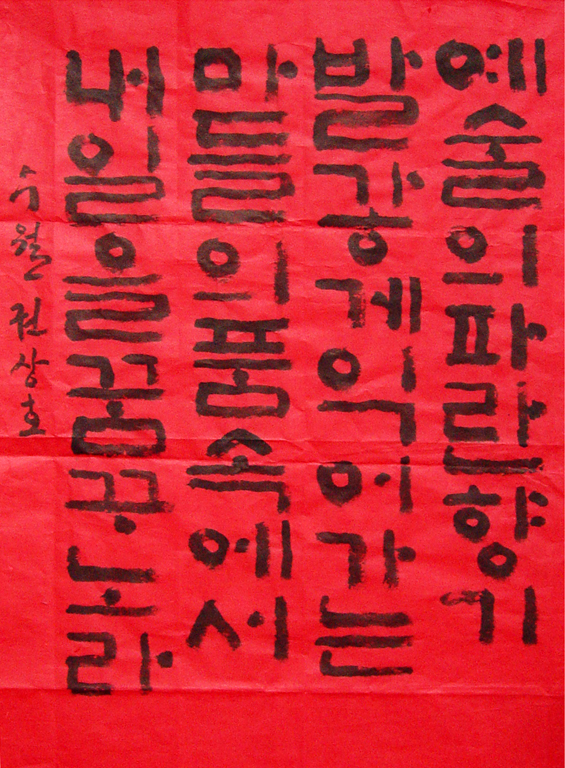 예술의파란향기
발갛게익어가는
마들의품속에서
내일을꿈꾸노라
수월 권상호